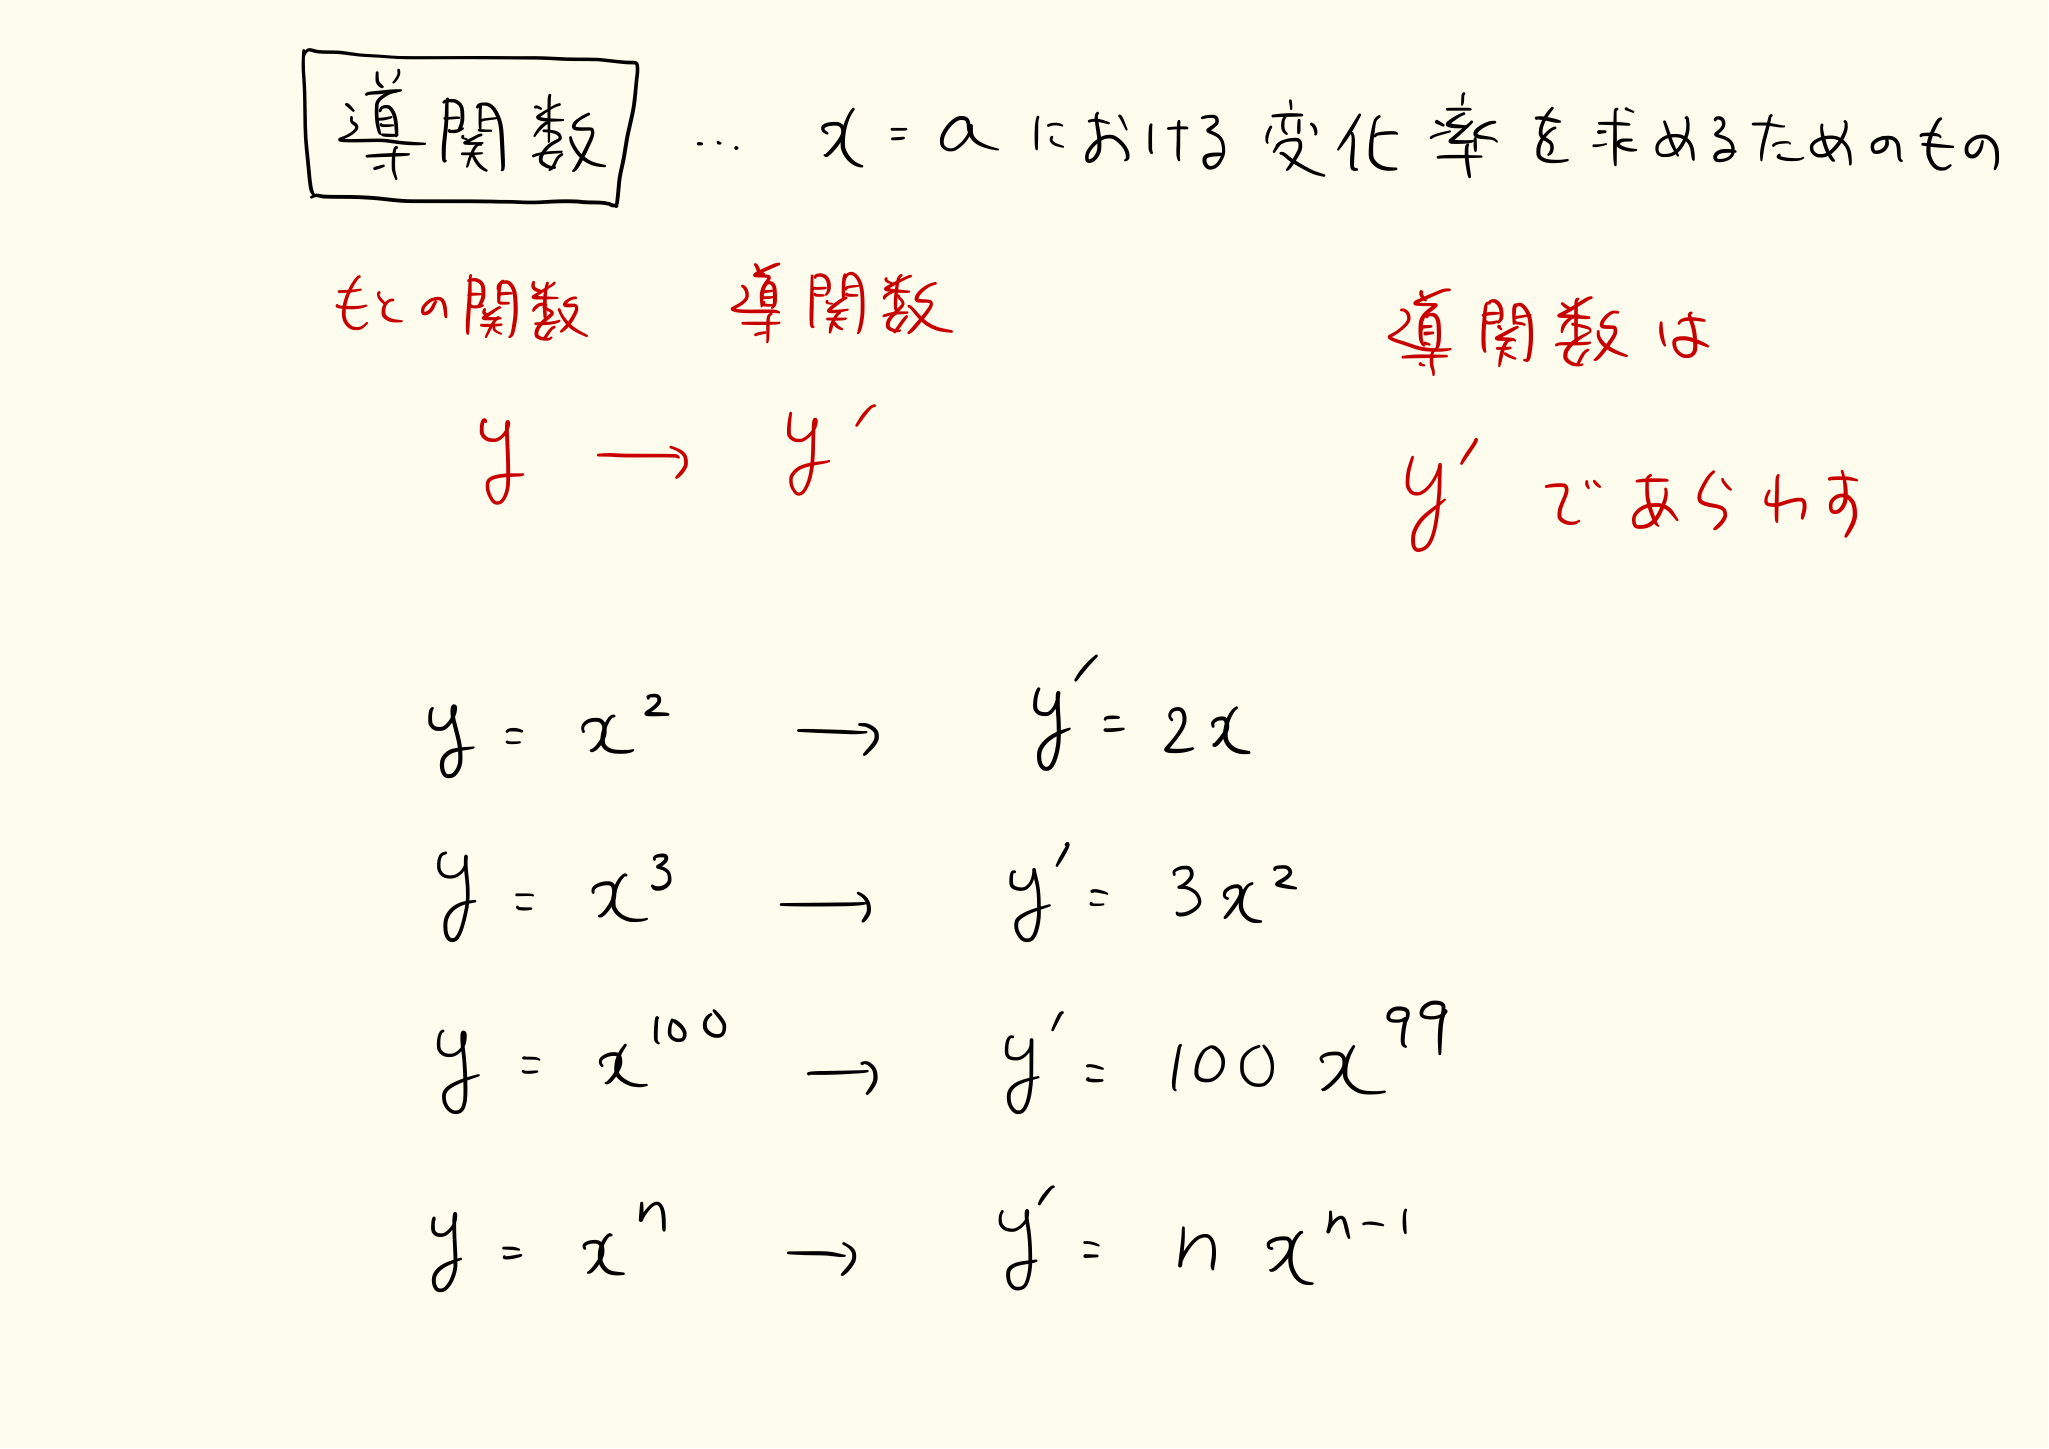 導関数 … x = a における変化率を求めるためのもの
もとの関数 導関数
y → y′
導関数は
y′ であらわす
y = x² → y′ = 2x
y = x³ → y′ = 3x²
y = x¹⁰⁰ → y′ = 100x⁹⁹
y = xⁿ → y′ = n xⁿ⁻¹